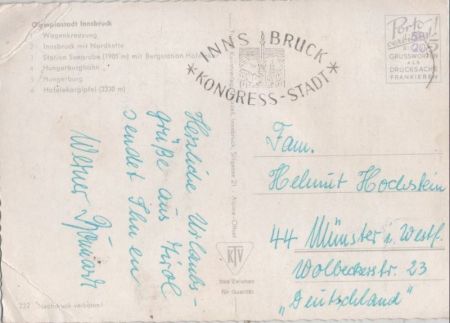 Olympiastadt Innsbruck
1 Wagenkreuzung
2 Innsbruck mit Nordkette
3 Station Seegrube (1905 m) mit Bergstation
4 Hungerburgbahn
5 Hungerburg
6 Hafelekargipfel (2330 m)
INNSBRUCK
*KONGRESS-STADT*
Porto!
GRUSSWORTEN
ALS
DRUCKSACHE
FRANKIEREN
Herzliche Urlaubs-
grüße aus Tirol
sendet Ihnen
Werner
Fam.
Helmut Hochstein
44 Münster i. Westf.
Wolbeckerstr. 23
„Deutschland"
KTV
Das Zeichen
für Qualität
722 Nachdruck verboten!